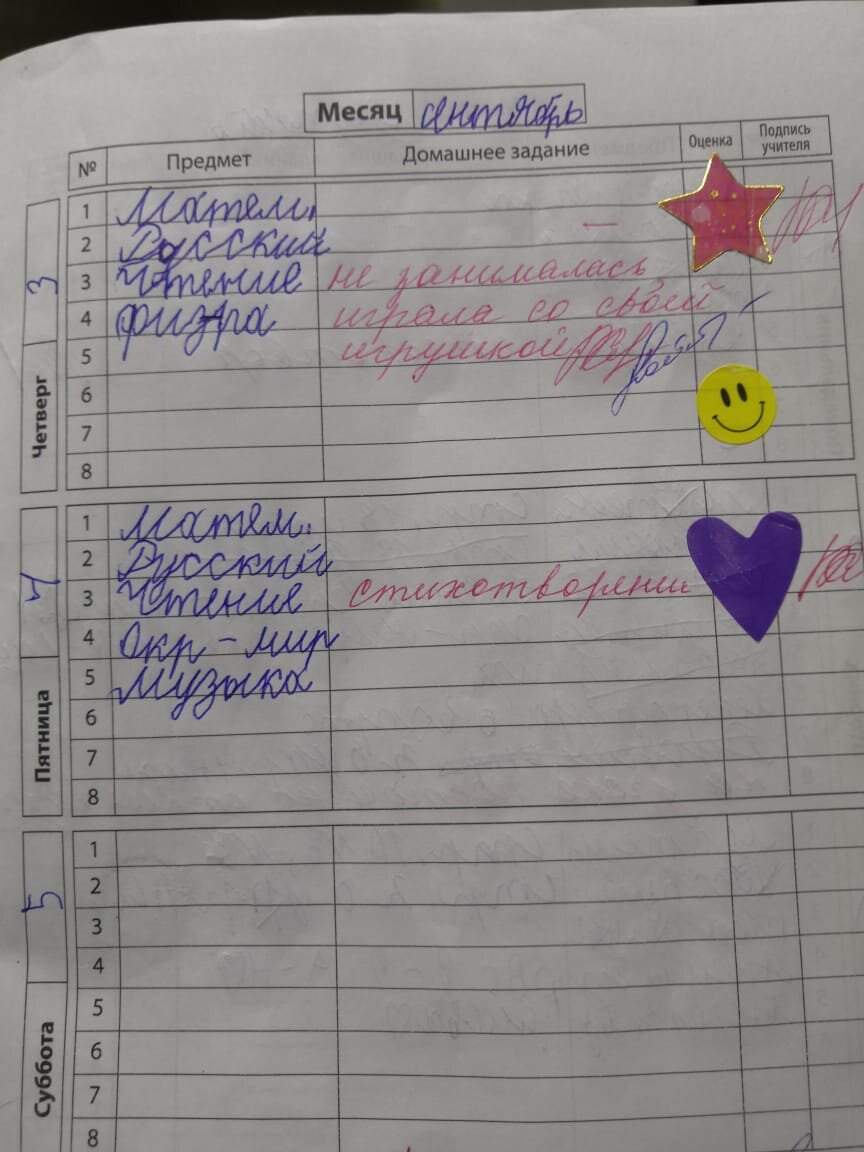 Месяц сентябрь
№ Предмет Домашнее задание Оценка Подпись учителя
3 Четверг
1 Матем.
2 Русский —
3 Чтение не занималась,
4 физ-ра играла со своей
5 игрушкой
6
7
8
4 Пятница
1 Матем.
2 Русский
3 Чтение стихотворении
4 Окр-мир
5 Музыка
6
7
8
5 Суббота
1
2
3
4
5
6
7
8